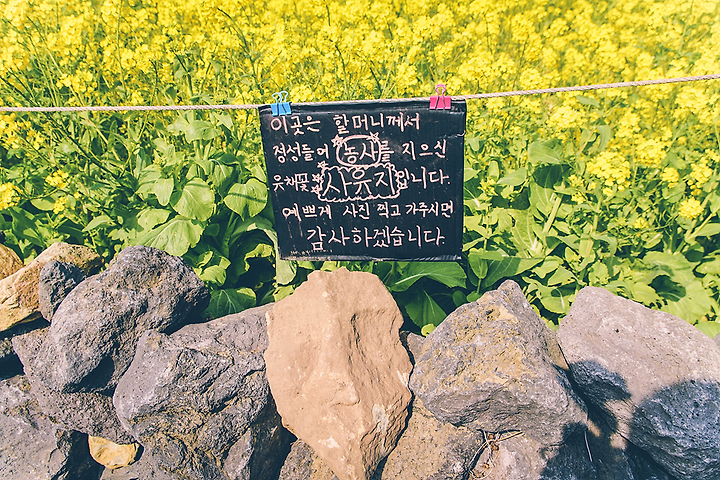 이곳은 할머니께서
정성들여 농사를 지으신
유채꽃 사유지입니다.
예쁘게 사진 찍고 가주시면
감사하겠습니다.